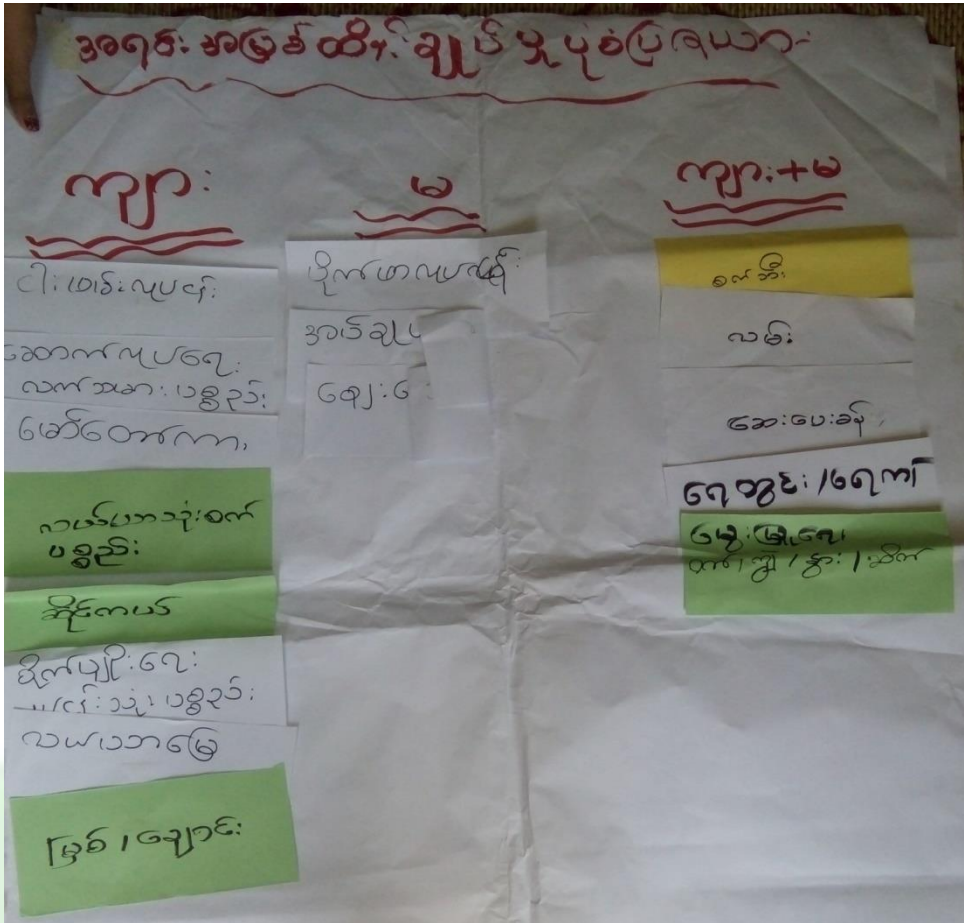 အရင်းအမြစ်ထိန်းချုပ်မှုပုံစံပြဇယား
ကျား
မ
ကျား+မ
ငါးဖမ်းလုပ်ငန်း
ဆောက်လုပ်ရေး
လက်သမားပစ္စည်း
မော်တော်ကား
လယ်ယာသုံးစက်
ပစ္စည်း
ဆိုင်ကယ်
စိုက်ပျိုးရေး
သုံးပစ္စည်း
လယ်ယာမြေ
မြစ်/ချောင်း
အပ်ချုပ်
ဈေး
စက်ဘီး
လမ်း
ဆေးပေးခန်း
ရေတွင်း/ရေကန်
မွေးမြူရေး
ဝက်/ကျွဲ/နွား/ဆိတ်